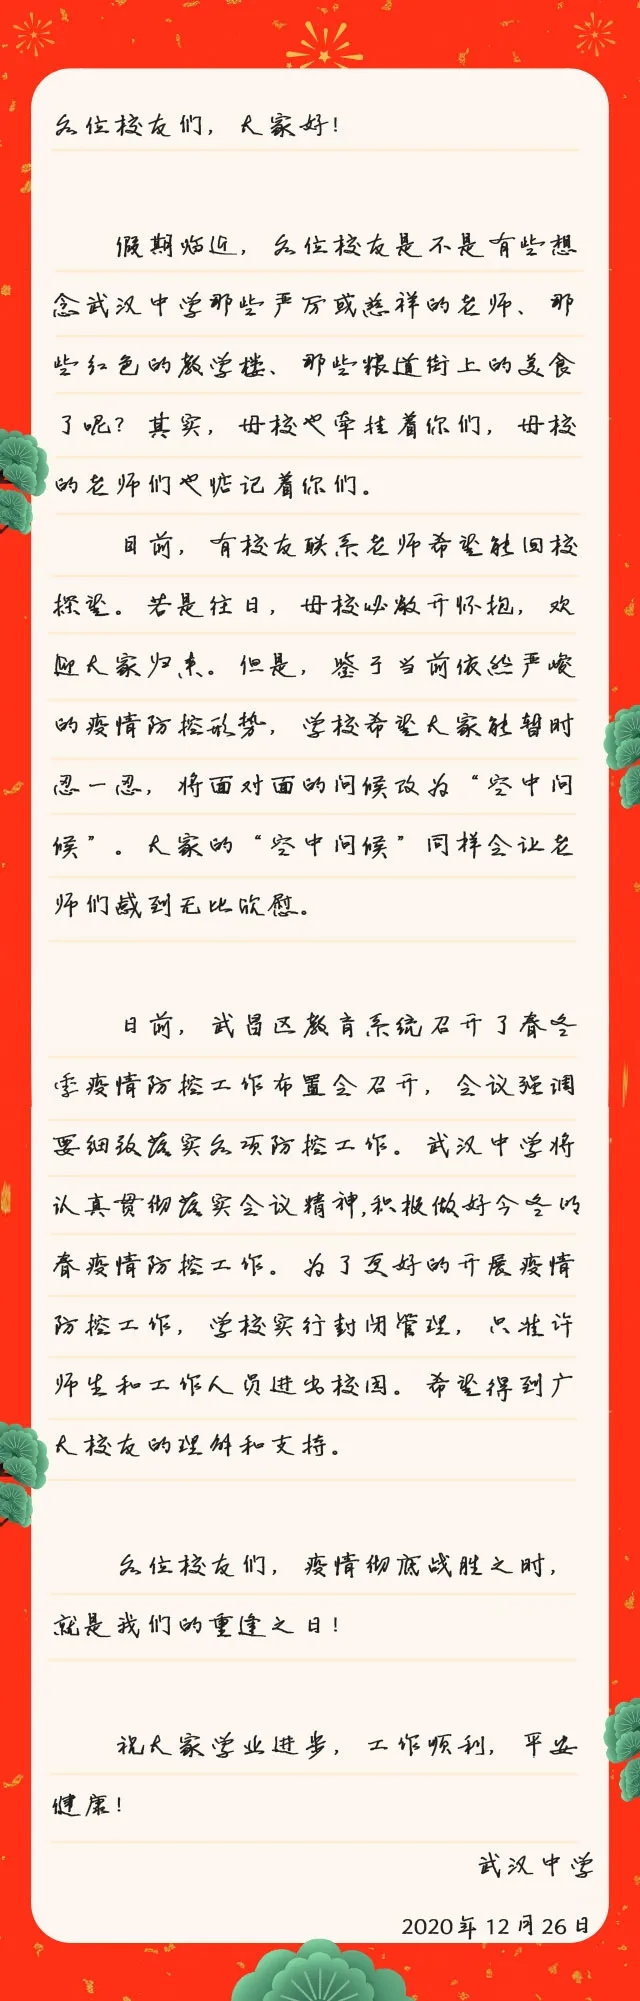 各位校友们，大家好！
假期临近，各位校友是不是有些想
念武汉中学那些严厉或慈祥的老师、那
些红色的教学楼、那些粮道街上的美食
了呢？其实，母校也牵挂着你们，母校
的老师们也惦记着你们。
目前，有校友联系老师希望能回校
探望。若是往日，母校必敞开怀抱，欢
迎大家归来。但是，鉴于当前依然严峻
的疫情防控形势，学校希望大家能暂时
忍一忍，将面对面的问候改为“空中问
候”。大家的“空中问候”同样会让老
师们感到无比欣慰。
日前，武昌区教育系统召开了春冬
季疫情防控工作布置会召开，会议强调
要细致落实各项防控工作。武汉中学将
认真贯彻落实会议精神,积极做好今冬明
春疫情防控工作。为了更好的开展疫情
防控工作，学校实行封闭管理，只准许
师生和工作人员进出校园。希望得到广
大校友的理解和支持。
各位校友们，疫情彻底战胜之时，
就是我们的重逢之日！
祝大家学业进步，工作顺利，平安
健康！
武汉中学
2020年12月26日